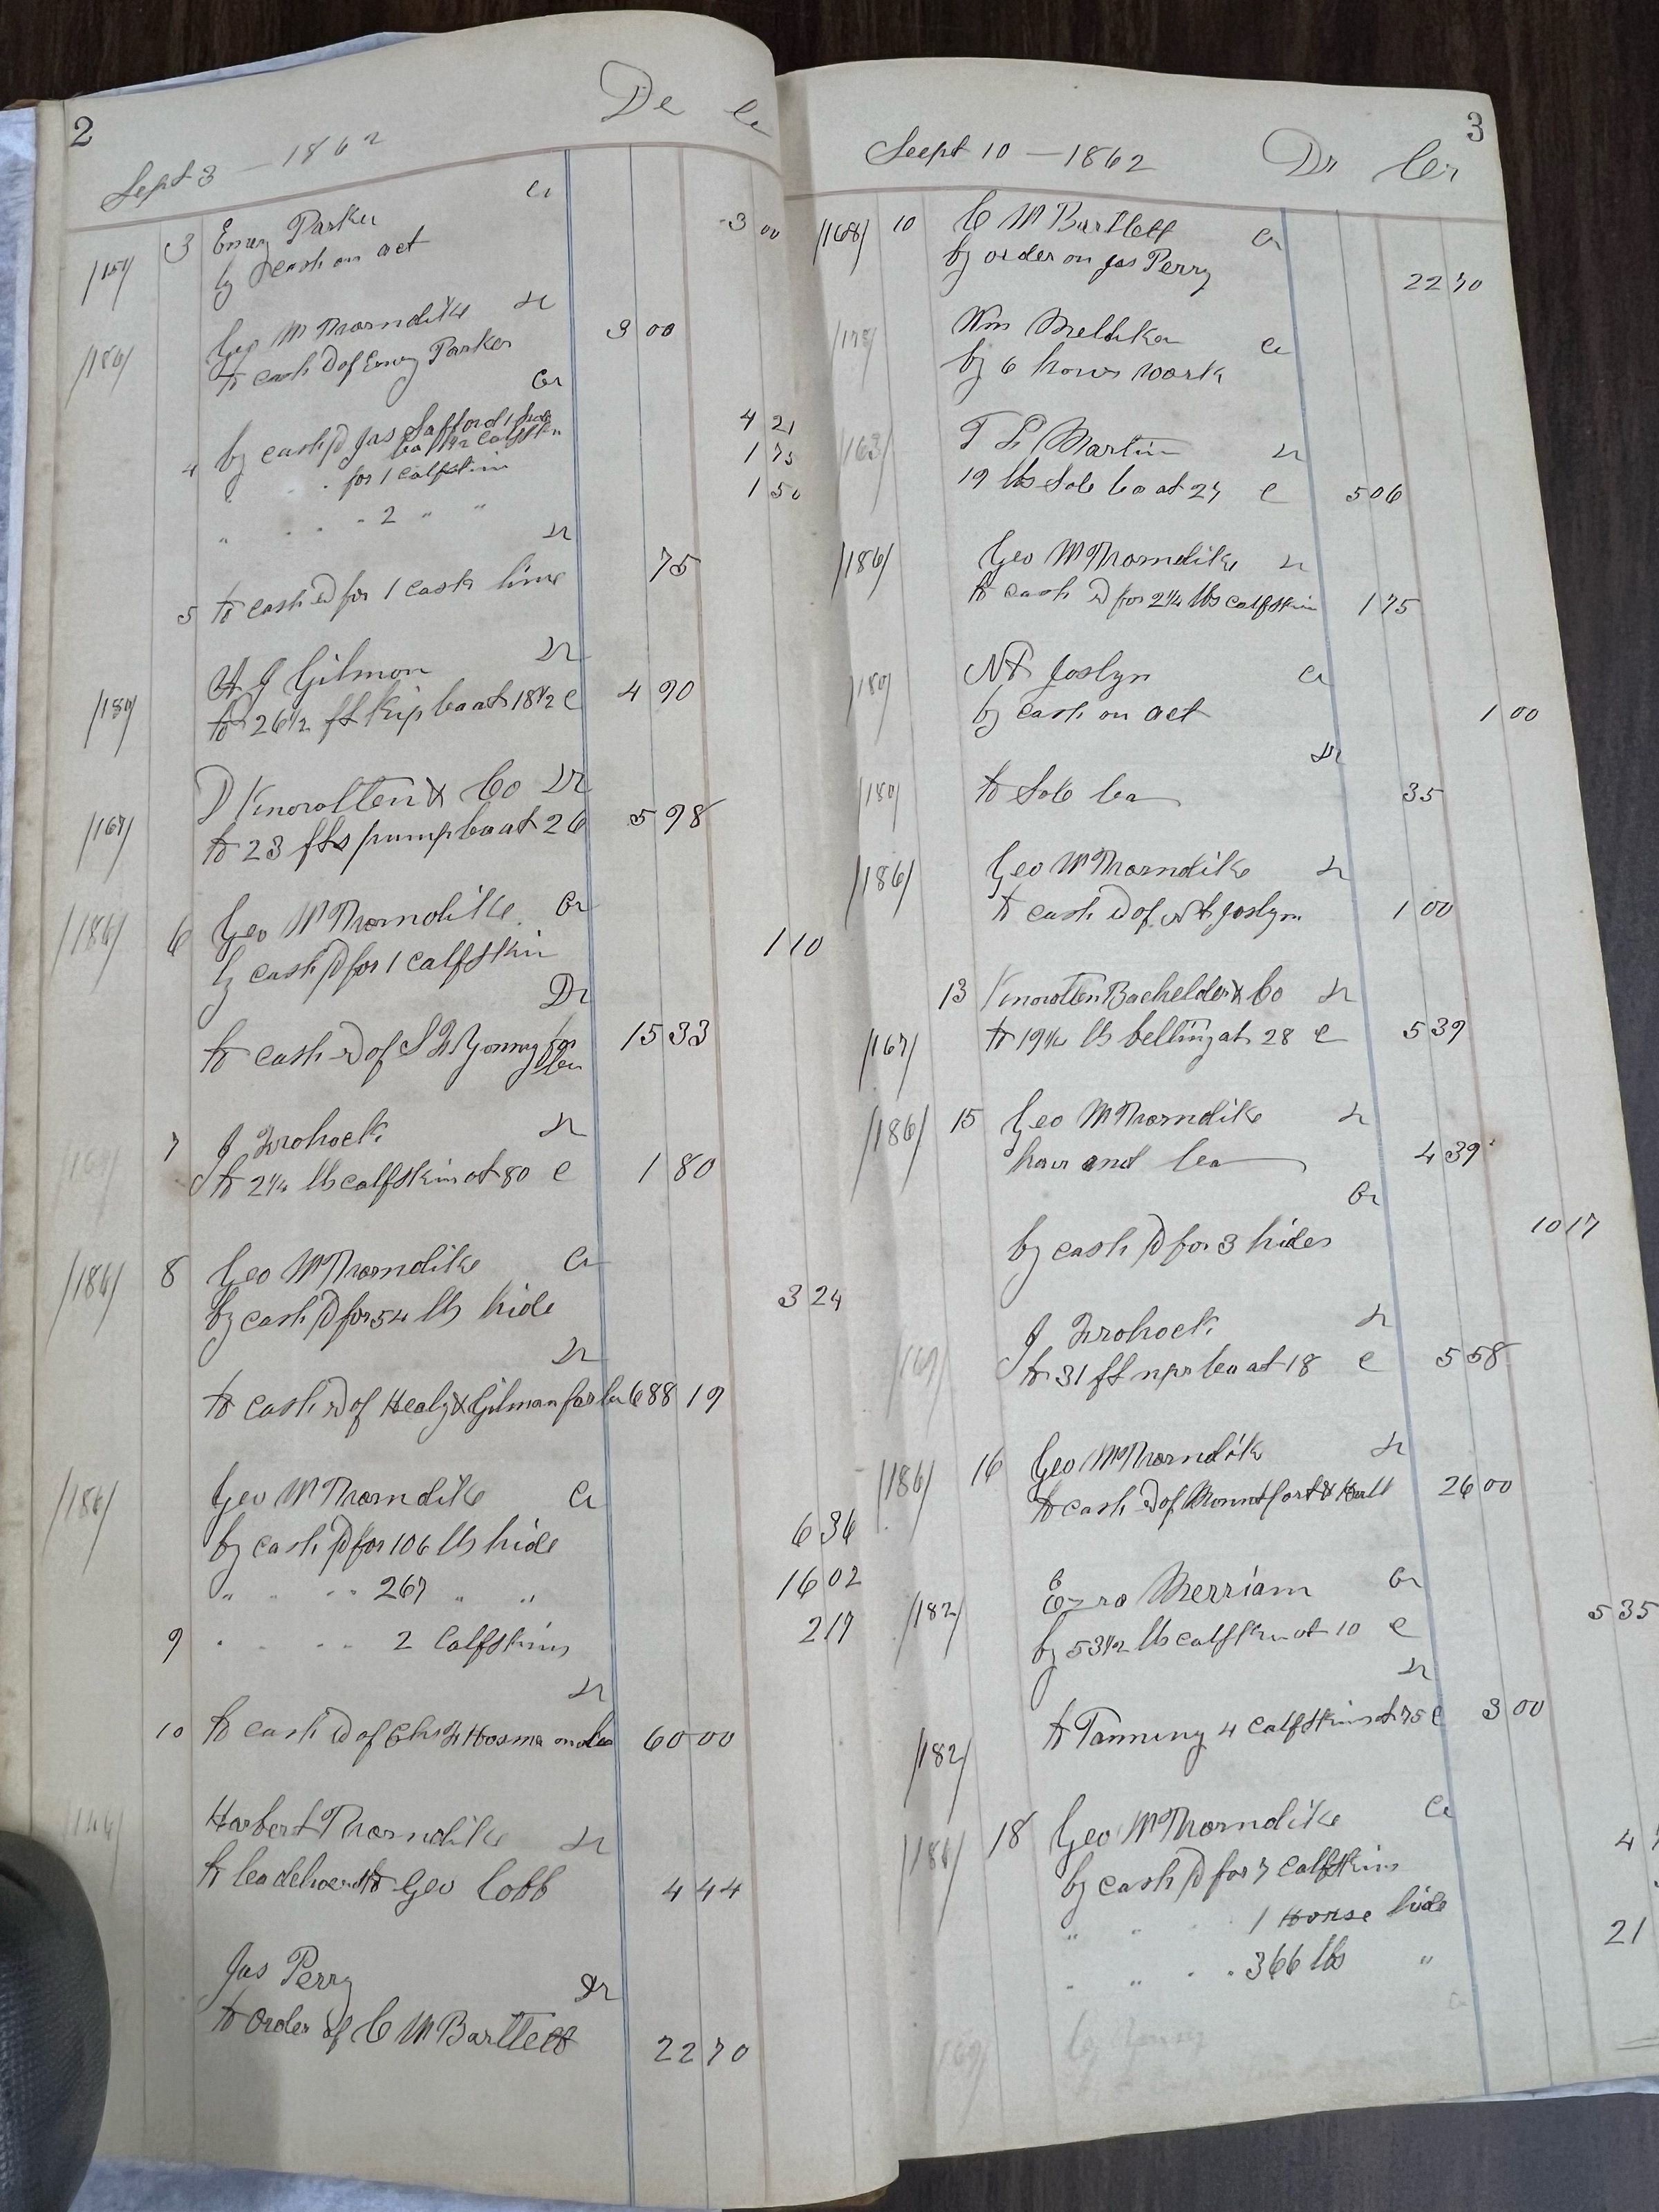 2
De Cr
Sept 3 — 1862
/157/ 3 Emery Parker Cr
by cash on act 3 00
/186/ Geo W Thorndike Dr
to cash rd of Emery Parker 3 00
Cr
by cash pd Jas Safford 1 hide 4 21
4 " " for 1 calfskin 1 75
" " " 2 " " 1 50
Dr
5 to cash rd for 1 cask lime 75
A J Gilmon Dr
to 26 1/2 ft Kip lea at 18 1/2 c 4 90
/167/ D Knowlten & Co Dr
to 23 fts pump lea at 26 5 98
/186/ 6 Geo W Thorndike Cr
by cash pd for 1 calfskin 1 10
Dr
to cash rd of S L Young for lea 15 33
7 J Frohock Dr
to 2 1/4 lb calfskin at 80 c 1 80
/186/ 8 Geo W Thorndike Cr
by cash pd for 54 lb hide 3 24
Dr
to cash rd of Healy & Gilman for lea 688 19
/186/ Geo W Thorndike Cr
by cash pd for 106 lb hide 6 36
" " " " 267 " " 16 02
9 " " " " 2 Calfskins 2 17
Dr
10 to cash rd of Chs F Hosmer on lea 60 00
Harbert Thorndike Dr
to lea delivered to Geo Cobb 4 44
Jas Perry Dr
to Order of C W Bartlett 22 70
3
Seept 10 — 1862 Dr Cr
/168/ 10 C W Bartlett Cr
by order on Jas Perry 22 70
Wm Cr
by 6 hours work
/163/ T L Martin Dr
19 lbs Sole lea at 27 c 5 06
/186/ Geo W Thorndike Dr
to cash rd for 2 1/4 lbs calfskin 1 75
/180/ N P Joslyn Cr
by cash on act 1 00
Dr
/180/ to Sole lea 35
/186/ Geo W Thorndike Dr
to cash rd of N P Joslyn 1 00
13 Knowlten Bachelder & Co Dr
/167/ to 19 1/4 lb belting at 28 c 5 39
/186/ 15 Geo W Thorndike Dr
hair and lea 4 39
Cr
by cash pd for 3 hides 10 17
/169/ J Frohock Dr
to 31 ft upr lea at 18 c 5 58
/186/ 16 Geo W Thorndik Dr
to cash rd of Mountfort & Hall 26 00
/182/ Ezra Merriam Cr
by 53 1/2 lb calfskin at 10 c 5 35
Dr
/182/ to Tanning 4 Calfskins at 75 c 3 00
/186/ 18 Geo W Thorndike Cr
by cash pd for 7 calfskins 4
" " " 1 Horse hide
" " " " 366 lbs " 21